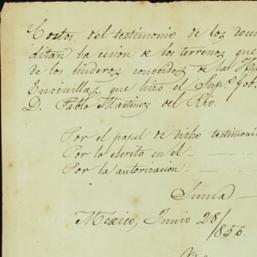 Costos del testimonio de los docu
ditan la cesion de los terrenos que
de los linderos conocidos de las
Encinillas, que hizo el Sup.º Gob.
D. Pablo Martinez del Rio.
Por el papel de dicho testimoni
Por lo escrito en el
Por la autorizacion
Suma
Mexico, Junio 28/856.